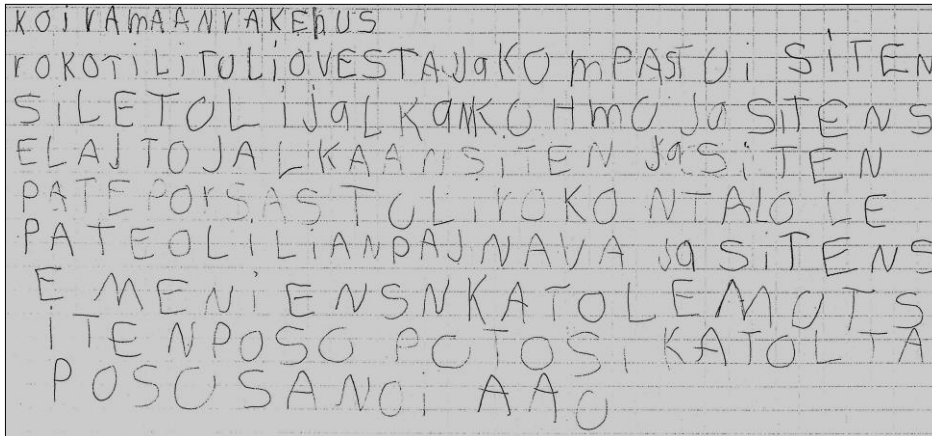 KOiRAmAANRAKEhUS
rOKOTiLiTULiOVESTAJaKOmPASTUi SiTEN
SiLETOLi jaLKaNKOHmO ja SiTENS
ELAJTOJALKAANSiTEN jaSiTEN
PATEPOrSAS TULi rOKO NTALO LE
PATEOLiLiiANPAJNAVA ja SiTENS
E MENiENSNKATOLEMUTS
iTENPOSO PUTOSi KATOLTA
POSO SANOi AAO